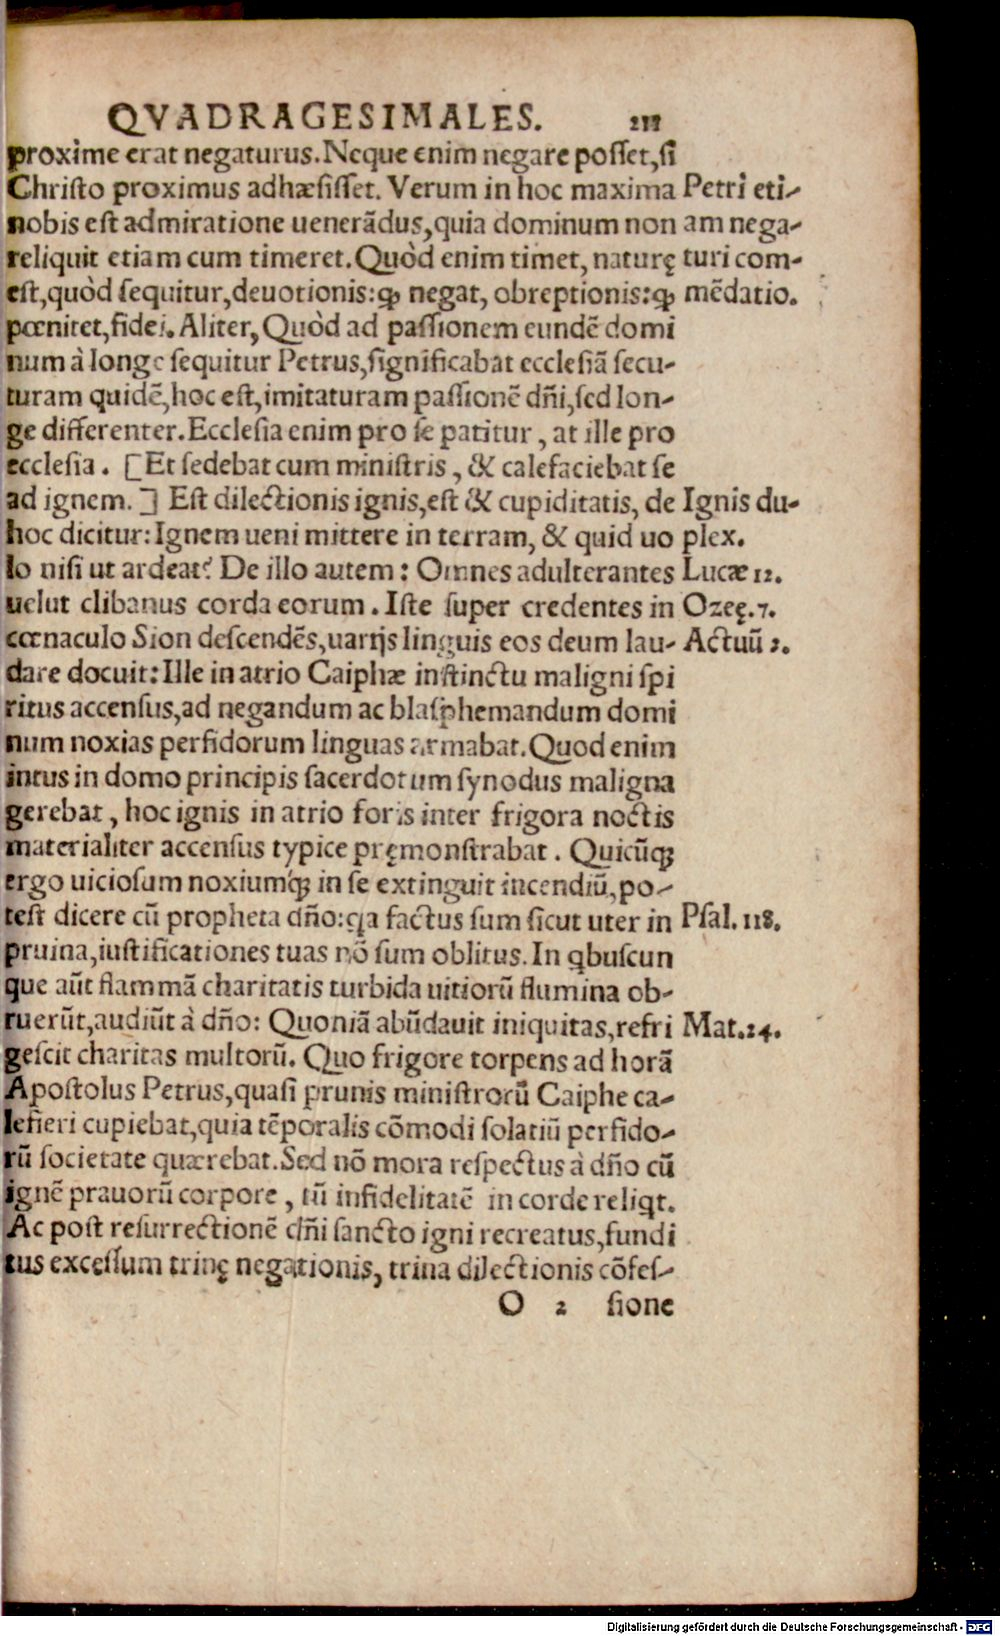 QVADRAGESIMALES. 211
proxime erat negaturus. Neque enim negare posset, si
Christo proximus adhæsisset. Verum in hoc maxima Petri eti-
nobis est admiratione uenerādus, quia dominum non am nega-
reliquit etiam cum timeret. Quòd enim timet, naturę turi com-
est, quòd sequitur, deuotionis: ꝙ negat, obreptionis: ꝙ mēdatio.
pœnitet, fidei. Aliter, Quòd ad passionem eundē domi
num à longe sequitur Petrus, significabat ecclesiā secu-
turam quidē, hoc est, imitaturam passionē dñi, sed lon-
ge differenter. Ecclesia enim pro se patitur, at ille pro
ecclesia. [Et sedebat cum ministris, & calefaciebat se
ad ignem.] Est dilectionis ignis, est & cupiditatis, de Ignis du-
hoc dicitur: Ignem ueni mittere in terram, & quid uo plex.
lo nisi ut ardeat? De illo autem: Omnes adulterantes Lucæ 12.
uelut clibanus corda eorum. Iste super credentes in Ozeę. 7.
cœnaculo Sion descendēs, uarijs linguis eos deum lau- Actuū 2.
dare docuit: Ille in atrio Caiphæ instinctu maligni spi
ritus accensus, ad negandum ac blasphemandum domi
num noxias perfidorum linguas armabat. Quod enim
intus in domo principis sacerdotum synodus maligna
gerebat, hoc ignis in atrio foris inter frigora noctis
materialiter accensus typice pręmonstrabat. Quicūq;
ergo uiciosum noxiumq́; in se extinguit incendiū, po-
test dicere cū propheta dño: qa factus sum sicut uter in Psal. 118.
pruina, iustificationes tuas nō sum oblitus. In qbuscun
que aūt flammā charitatis turbida uitiorū flumina ob-
ruerūt, audiūt à dño: Quoniā abūdauit iniquitas, refri Mat. 24.
gescit charitas multorū. Quo frigore torpens ad horā
Apostolus Petrus, quasi prunis ministrorū Caiphe ca-
lefieri cupiebat, quia tēporalis cōmodi solatiū perfido-
rū societate quærebat. Sed nō mora respectus à dño cū
ignē prauorū corpore, tū infidelitatē in corde reliqt.
Ac post resurrectionē dñi sancto igni recreatus, fundi
tus excessum trinę negationis, trina dilectionis cōfes-
O 2 sione
Digitalisierung gefördert durch die Deutsche Forschungsgemeinschaft - DFG